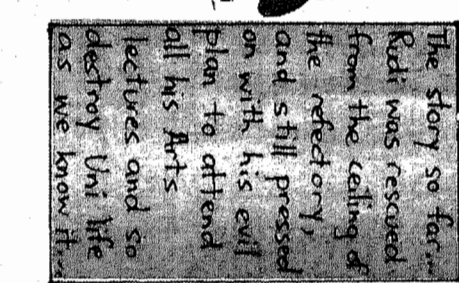 The story so far...
Rudi was rescued
from the ceiling of
the refectory,
and still pressed
on with his evil
plan to attend
all his Arts
lectures and so
destroy Uni life
as we know it...